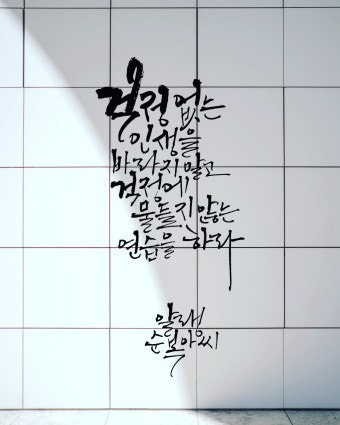 걱정없는
인생을
바라지말고
걱정에
물들지않는
연습을 하라